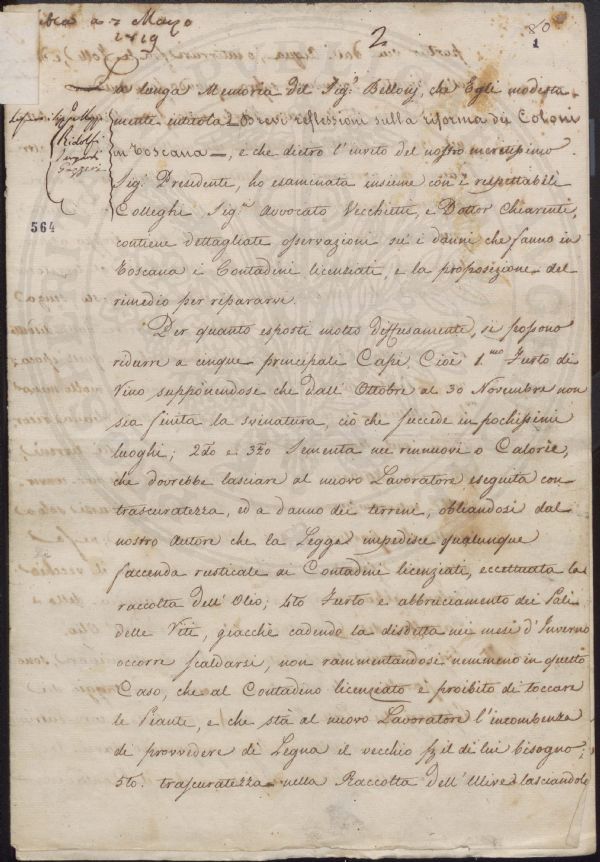 a 7 Marzo
1819
2
80
1
La lunga Memoria del Sig.r Bellonj, che Egli modesta-
mente intitola Brevi reflessioni sulla riforma dei Coloni
in Toscana, e che dietro l'invito del nostro meritissimo
Sig. Presidente, ho esaminata insieme con i respettabili
Colleghi Sig.ri Avvocato Vecchietti, e Dottor Chiarenti,
contiene dettagliate osservazioni su i danni che fanno in
Toscana i Contadini licenziati, e la proposizione del
rimedio per ripararvi.
Ridolfi
564
Per quanto esposti molto diffusamente, si possono
ridurre a cinque principali Capi Cioè 1.mo Furto di
Vino supponendosi che dall'Ottobre al 30 Novembre non
sia finita la svinatura, ciò che succede in pochissimi
luoghi; 2do e 3zo Sementa nei rinnuovi o Caloríe,
che dovrebbe lasciare al nuovo Lavoratore eseguita con
trascuratezza, ed a danno dei terreni, obliandosi dal
nostro autore che la Legge impedisce qualunque
faccenda rusticale ai Contadini licenziati, eccettuata la
raccolta dell'Olio; 4to Furto e abbruciamento dei Pali
delle Viti, giacchè cadendo la disdetta nei mesi d'Inverno
occorre scaldarsi, non rammentandosi nemmeno in questo
Caso, che al Contadino licenziato è proibito di toccare
le Piante, e che stà al nuovo Lavoratore l'incombenza
di provvedere di Legna il vecchio p il di lui bisogno;
5to. trascuratezza nella Raccolta dell'Ulive lasciandole